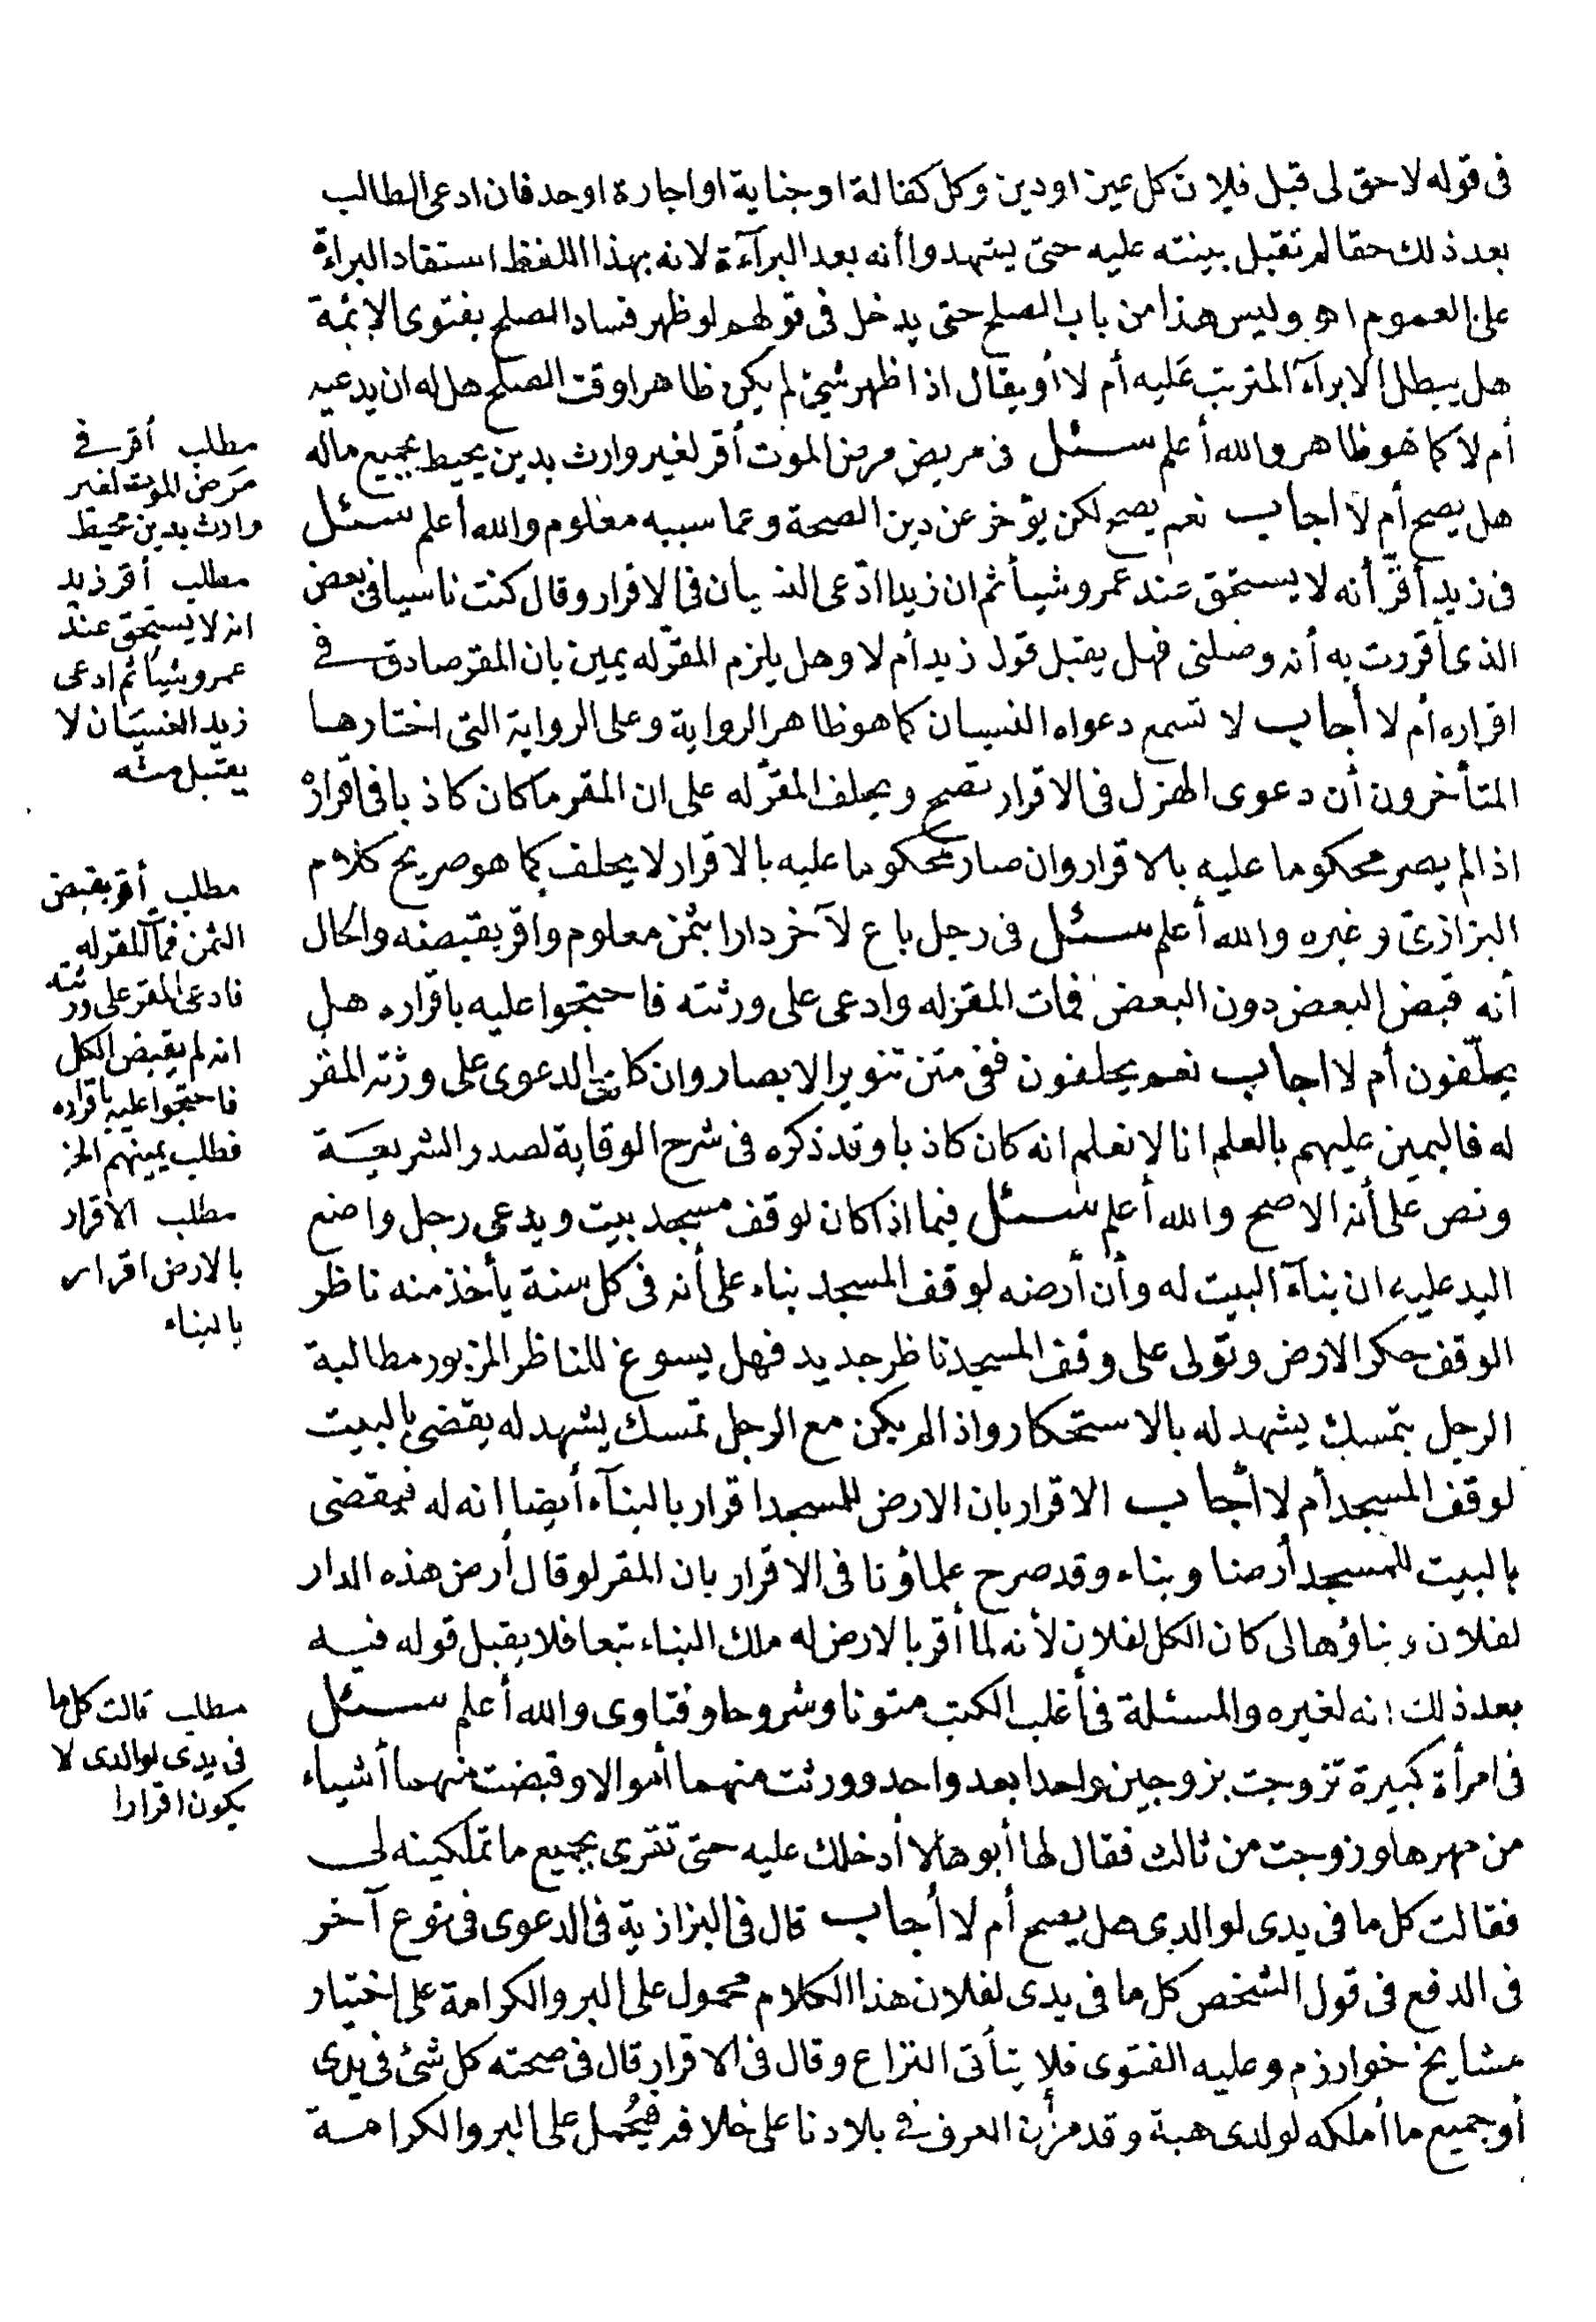 فى قوله لاحق لى قبل فلان كل عين او دين وكل كفالة او جناية او اجارة او حد فان ادعى الطالب
بعد ذلك حقا لم تقبل بينته عليه حتى يشهدوا أنه بعد البرآءة لانه بهذا اللفظ استفاد البراءة
على العموم اهـ وليس هذا من باب الصلح حتى يدخل فى قولهم لو ظهر فساد الصلح بفتوى الائمة
هل يبطل الابرآء المترتب عليه أم لا أو يقال اذا ظهر شيئ لم يكن ظاهرا وقت الصلح هل له ان يدعيه
أم لا كما هو ظاهر والله أعلم سـئل فى مريض مرض الموت أقر لغير وارث بدين يحيط بجميع ماله
هل يصح أم لا اجاب نعم يصح لكن يؤخر عن دين الصحة وعما سببه معلوم والله أعلم سـئل
فى زيد أقرّ أنه لا يستحق عند عمرو شيأ ثم ان زيدا ادّعى النسيان فى الاقرار وقال كنت ناسيا فى بعض
الذى أقررت به أنه وصلنى فهل يقبل قول زيد أم لا وهل يلزم المقرّ له يمين بان المقر صادق فى
اقراره أم لا أجاب لا تسمع دعواه النسيان كما هو ظاهر الرواية وعلى الرواية التى اختارها
المتأخرون أن دعوى الهزل فى الاقرار تصح ويحلف المقرّ له على ان المقر ما كان كاذبا فى اقراره
اذا لم يصر محكوما عليه بالاقرار وان صار محكوما عليه بالاقرار لا يحلف كما هو صريح كلام
البزازىّ وغيره والله أعلم سـئل فى رجل باع لآخر دارا بثمن معلوم واقر بقبضه والحال
أنه قبض البعض دون البعض فمات المقر له وادعى على ورثته فاحتجوا عليه باقراره هل
يحلّفون أم لا اجاب نعم يحلفون ففى متن تنوير الابصار وان كانت الدعوى على ورثة المقر
له فاليمين عليهم بالعلم انا لا نعلم انه كان كاذبا وقد ذكره فى شرح الوقاية لصدر الشريعة
ونص على أنه الاصح والله أعلم سـئل فيما اذا كان لوقف مسجد بيت ويدعى رجل واضع
اليد عليه ان بنآء البيت له وأن أرضه لوقف المسجد بناء على أنه فى كل سنة يأخذ منه ناظر
الوقف حكر الارض وتولى على وقف المسجد ناظر جديد فهل يسوغ للناظر المزبور مطالبة
الرجل بتمسك يشهد له بالاستحكار واذا لم يكن مع الرجل تمسك يشهد له يقضى بالبيت
لوقف المسجد أم لا أجاب الاقرار بان الارض للمسجد اقرار بالبنآء أيضا انه له فيقضى
بالبيت للمسجد أرضا وبناء وقد صرح علماؤنا فى الاقرار بان المقر لو قال أرض هذه الدار
لفلان وبناؤها لى كان الكل لفلان لأنه لما أقر بالارض له ملك البناء تبعا فلا يقبل قوله فيه
بعد ذلك انه لغيره والمسئلة فى أغلب الكتب متونا وشروحا وفتاوى والله أعلم سـئل
فى امرأة كبيرة تزوجت بزوجين واحدا بعد واحد وورثت منهما أموالا وقبضت منهما أشياء
من مهرها وزوجت من ثالث فقال لها أبوها لا أدخلك عليه حتى تقرى بجميع ما تملكينه لى
فقالت كل ما فى يدى لوالدى هل يصح أم لا أجاب قال فى البزازية فى الدعوى فى نوع آخر
فى الدفع فى قول الشخص كل ما فى يدى لفلان هذا الكلام محمول على البر والكرامة على اختيار
مشايخ خوارزم وعليه الفتوى فلا يتأتى النزاع وقال فى الاقرار قال فى صحته كل شئ فى يدى
أو جميع ما أملكه لولدى هبة وقد مر أن العرف فى بلادنا على خلافه فيُحمل على البر والكرامة
مطلب أقر فى
مرض الموت لغير
وارث بدين محيط
مطلب أقر زيد
انه لا يستحق عند
عمرو شيأ ثم ادعى
زيد النسيان لا
يقبل منه
مطلب أقر بقبض
الثمن فمات المقر له
فادعى المقر على ورثته
انه لم يقبض الكل
فاحتجوا عليه باقراره
فطلب يمينهم الخ
مطلب الاقرار
بالارض اقرار
بالبناء
مطلب قالت كل ما
فى يدى لوالدى لا
يكون اقرارا